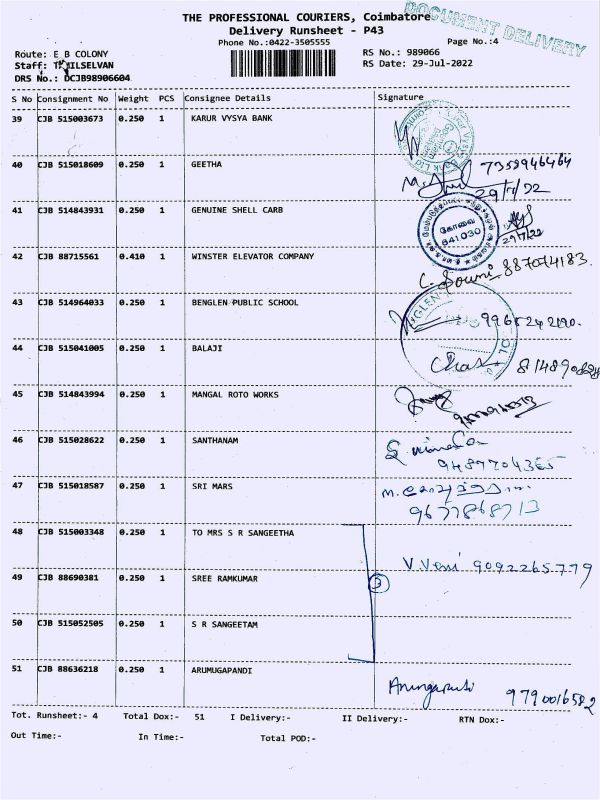 THE PROFESSIONAL COURIERS, Coimbatore
DOCUMENT DELIVERY
Delivery Runsheet - P43
Phone No.:0422-3505555
Page No.:4
Route: E B COLONY
RS No.: 989066
Staff: TAMILSELVAN
RS Date: 29-Jul-2022
DRS No.: DCJB98906604
S No Consignment No Weight PCS Consignee Details Signature
39 CJB 515003673 0.250 1 KARUR VYSYA BANK
40 CJB 515018609 0.250 1 GEETHA 7358946464
29/7/22
41 CJB 514843931 0.250 1 GENUINE SHELL CARB
கோவை
641030
29/7/22
42 CJB 88715561 0.410 1 WINSTER ELEVATOR COMPANY
43 CJB 514964033 0.250 1 BENGLEN PUBLIC SCHOOL
44 CJB 515041005 0.250 1 BALAJI
45 CJB 514843994 0.250 1 MANGAL ROTO WORKS
46 CJB 515028622 0.250 1 SANTHANAM
9487704365
47 CJB 515018587 0.250 1 SRI MARS
9677868713
48 CJB 515003348 0.250 1 TO MRS S R SANGEETHA
V. Veni 9092265779
49 CJB 88690381 0.250 1 SREE RAMKUMAR 3
50 CJB 515052505 0.250 1 S R SANGEETAM
51 CJB 88636218 0.250 1 ARUMUGAPANDI
9790016582
Tot. Runsheet:- 4 Total Dox:- 51 I Delivery:- II Delivery:- RTN Dox:-
Out Time:- In Time:- Total POD:-